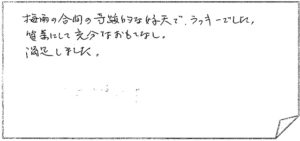 梅雨の合間の奇跡的な好天で、ラッキーでした。
簡素にして充分なおもてなし。
満足しました。